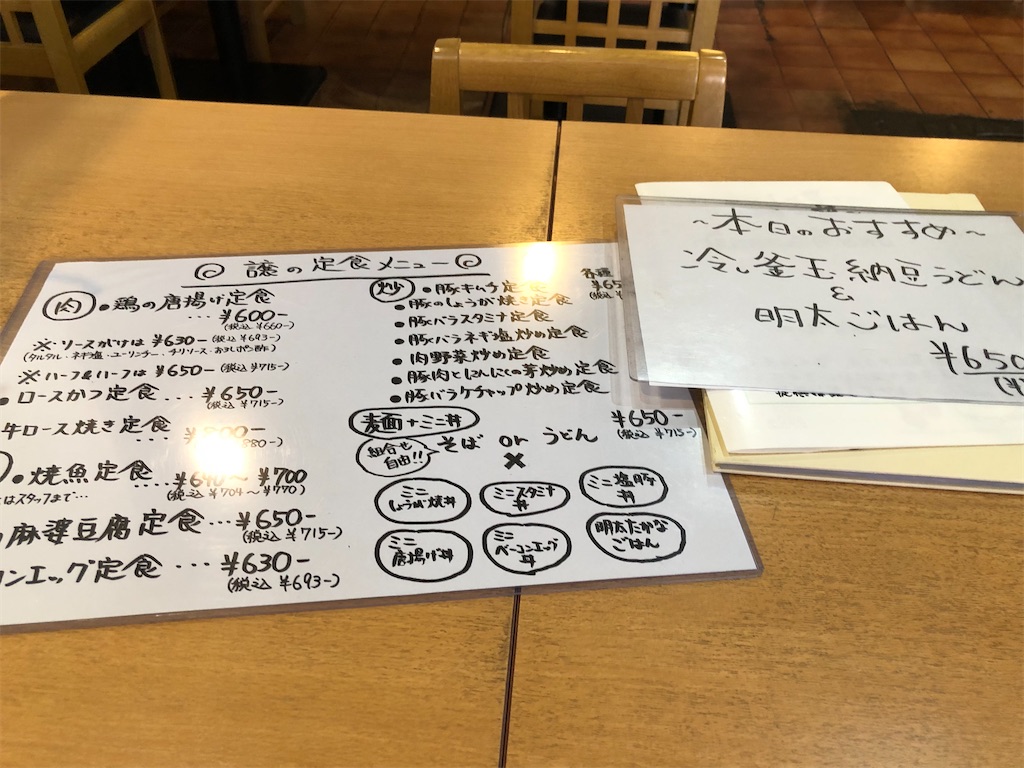 譲の定食メニュー
肉
・鶏の唐揚げ定食
... ¥600-
(税込 ¥660-)
※ソースがけは ¥630-
(税込 ¥693-)
(タルタル・ネギ塩・ユーリンチー・チリソース・おろしポン酢)
※ハーフ&ハーフは ¥650-
(税込 ¥715-)
・ロースかつ定食 ... ¥650-
(税込 ¥715-)
牛ロース焼き定食
...
880-)
・焼魚定食
.... ¥640〜¥700
(税込 ¥704〜¥770)
はスタッフまで...
麻婆豆腐定食 ... ¥650-
(税込 ¥715-)
ンエッグ定食 ... ¥630-
(税込 ¥693-)
炒
・豚キムチ定食
・豚のしょうが焼き定食
・豚バラスタミナ定食
・豚バラネギ塩炒め定食
・肉野菜炒め定食
・豚肉とにんにくの芽炒め定食
・豚バラケチャップ炒め定食
各種
¥65
(税込
麺+ミニ丼
¥650-
(税込 ¥715-)
組合せ自由!!
そば or うどん
×
ミニしょうが焼丼
ミニスタミナ丼
ミニ塩豚丼
ミニ唐揚げ丼
ミニベーコンエッグ丼
明太たかなごはん
〜本日のおすすめ〜
冷し釜玉納豆うどん
&
明太ごはん
¥650